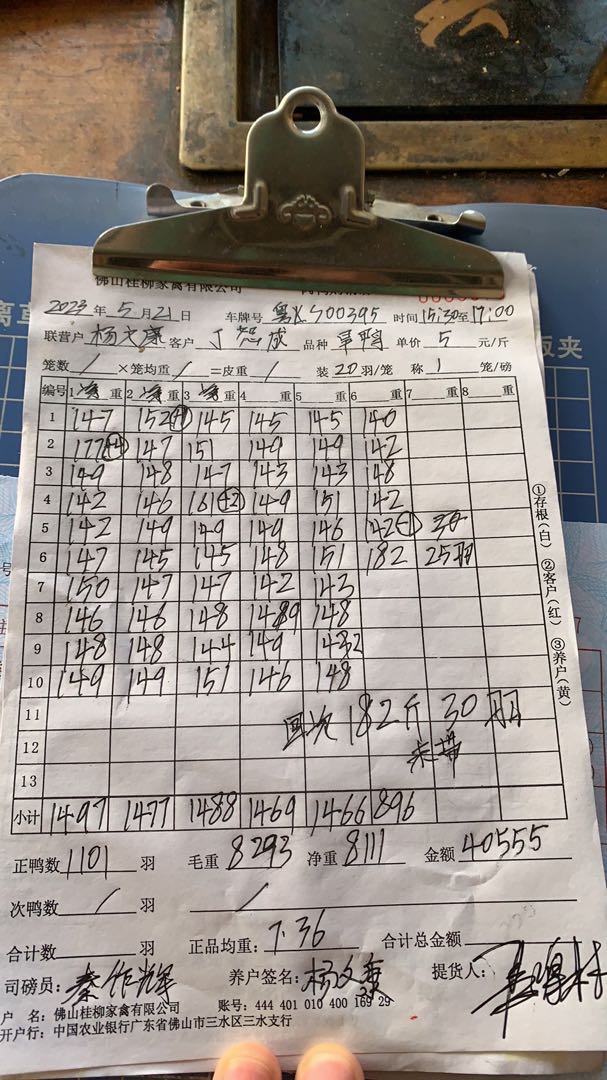 佛山桂柳家禽有限公司
2023年5月21日 车牌号 粤XS00395 时间15:30至17:00
联营户 杨文康 客户 丁 品种 单价 5 元/斤
笼数 / ×笼均重 / =皮重 / 装 20 羽/笼 称 1 笼/磅
编号 1 重 2 重 3 重 4 重 5 重 6 重 7 重 8 重
1 147 152 145 145 145 140
2 177+4 147 151 149 149 142
3 149 148 147 143 143 148
4 142 146 161+2 149 151 142
5 142 149 149 149 146 142
6 147 145 145 148 151 182 25羽
7 150 147 147 142 143
8 146 146 148 148
9 148 148 144 149
10 149 149 151 146 148
11 182斤 30羽
12 未带
13
小计 1497 1477 1488 1469 1466 896
正鸭数 1101 羽 毛重 8293 净重 8111 金额 40555
次鸭数 / 羽 /
合计数 羽 正品均重: 7.36 合计总金额
司磅员: 秦作辉 养户签名: 杨文康 提货人:
户 名: 佛山桂柳家禽有限公司 账号: 444 401 010 400 169 29
开户行: 中国农业银行广东省佛山市三水区三水支行
①存根(白) ②客户(红) ③养户(黄)
板夹